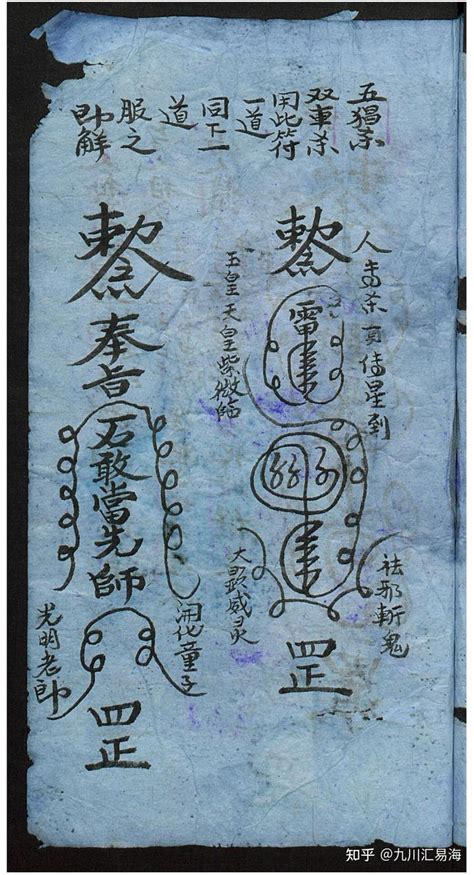 五猖杀
双車杀
用此符
一道
同下一
道
服之
即解
人
星到
雷
祛邪斬鬼
罡
玉皇天皇紫微
大显威灵
奉旨石敢當先師
罡
開化童子
光明老師
知乎 @九川汇易海